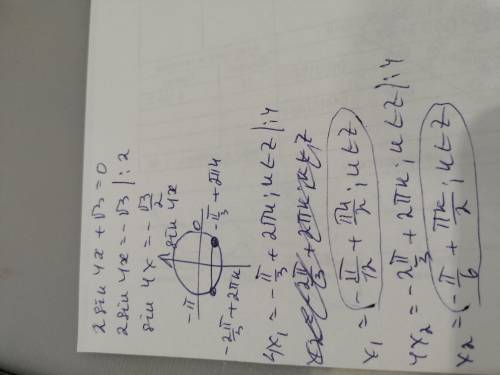 2sin 4x + √3 = 0
2sin 4x = -√3 | : 2
sin 4x = -√3/2
sin 4x
-π
0
-π/3 + 2πn
-2π/3 + 2πn
4x₁ = -π/3 + 2πn; n∈Z | : 4
x₁ = -π/12 + πn/2; n∈Z
4x₂ = -2π/3 + 2πn; n∈Z | : 4
x₂ = -π/6 + πn/2; n∈Z